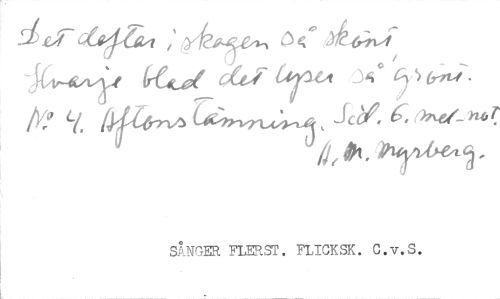 Det doftar i skogen så skönt,
Hvarje blad det lyser så grönt.
No 4. Aftonstämning. Sid. 6. med not.
A. M. Myrberg.
SÅNGER FLERST. FLICKSK. C.v.S.